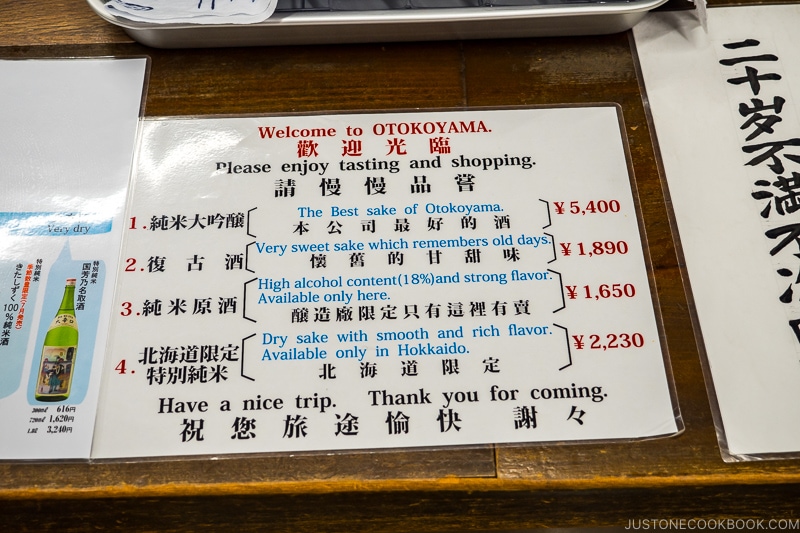 Welcome to OTOKOYAMA.
歡迎光臨
Please enjoy tasting and shopping.
請慢慢品嘗
1.純米大吟醸 The Best sake of Otokoyama. ¥5,400
本公司最好的酒
2.復古酒 Very sweet sake which remembers old days. ¥1,890
懷舊的甘甜味
3.純米原酒 High alcohol content(18%)and strong flavor. ¥1,650
Available only here.
醸造廠限定只有這裡有賣
4.北海道限定 Dry sake with smooth and rich flavor. ¥2,230
特別純米 Available only in Hokkaido.
北海道限定
Have a nice trip. Thank you for coming.
祝您旅途愉快 謝々
Very dry
特別純米
国芳乃名取酒
特別純米
季節数量限定(7月発売)
きたしずく100%純米酒
300㎖ 616円
720㎖ 1,620円
1.8ℓ 3,240円
二十岁不満不
JUSTONECOOKBOOK.COM